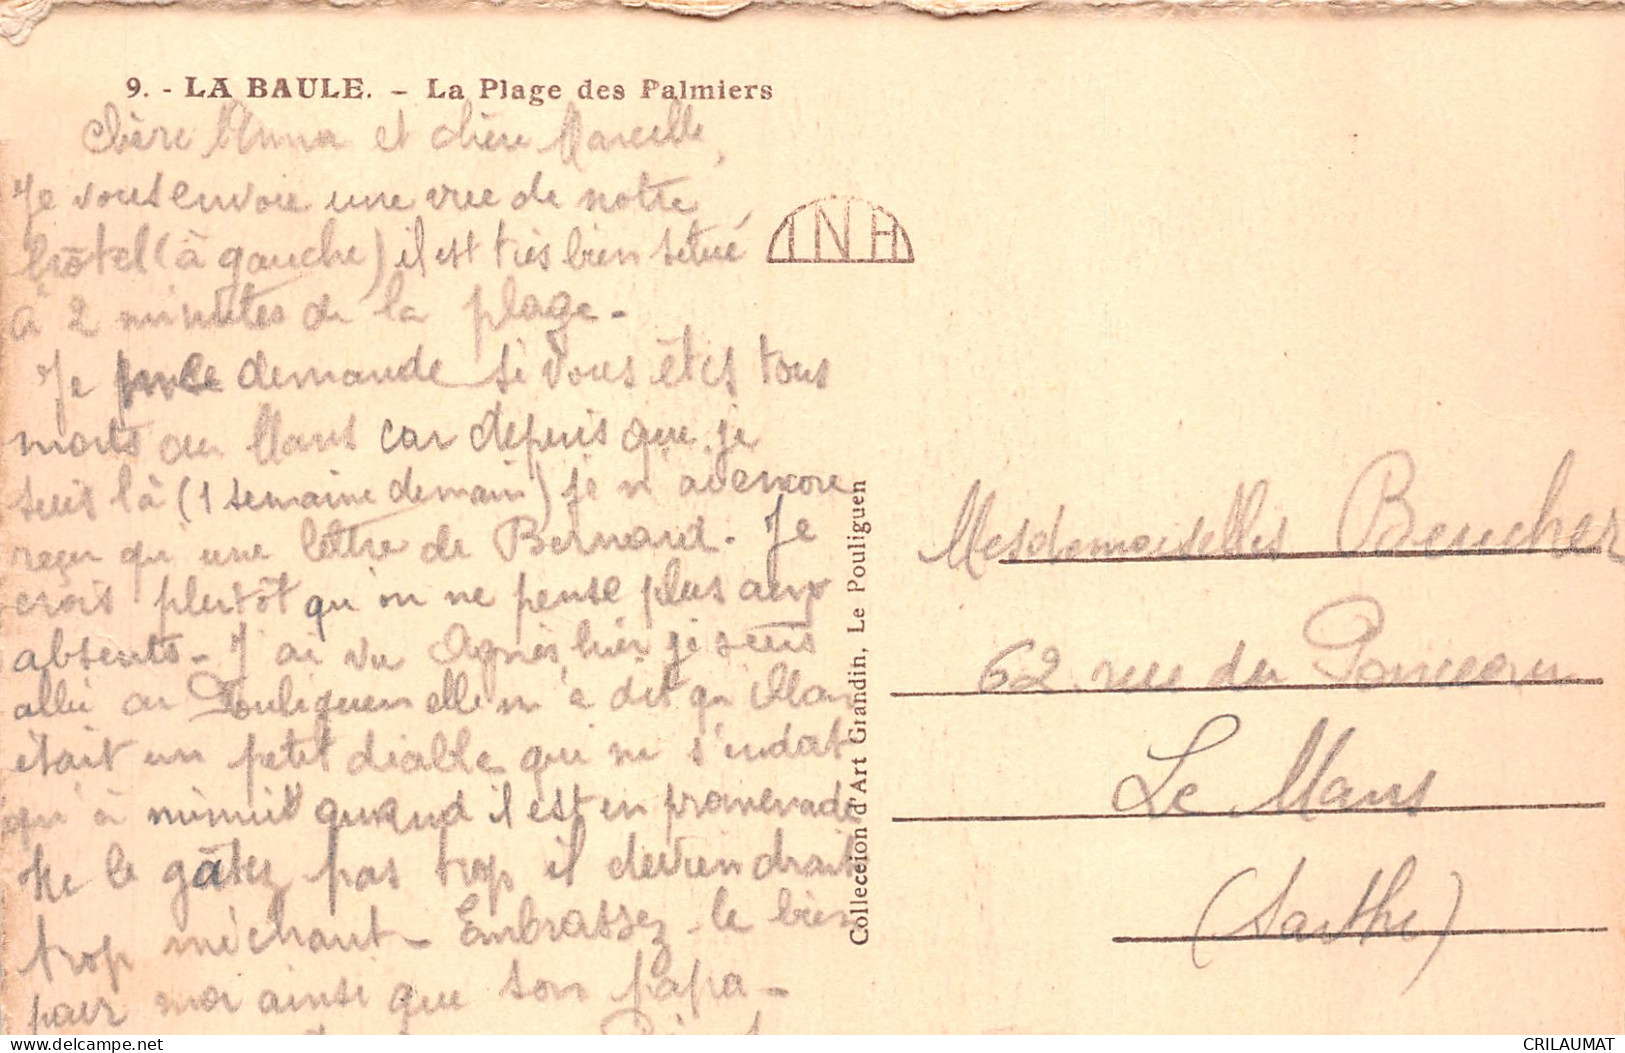 9. - LA BAULE. - La Plage des Palmiers
Chère Anna et chère Marcelle,
Je vous envoie une vue de notre
hôtel (à gauche) il est très bien situé
à 2 minutes de la plage.
Je me demande si vous êtes tous
morts au Mans car depuis que je
suis là (1 semaine demain) je n'ai encore
reçu qu'une lettre de Bernard. Je
crois plutôt qu'on ne pense plus aux
absents - J'ai vu Agnès hier je suis
allé au Pouliguen elle m'a dit qu'Alan
était un petit diable qui ne s'endort
qu'à minuit quand il est en promenade
Ne le gâtez pas trop il deviendrait
trop méchant - Embrassez-le bien
pour moi ainsi que son papa -
INA
Colleccion d'Art Grandin, Le Pouliguen
Mesdemoiselles Beucher
62 rue du Ponceau
Le Mans
(Sarthe)
delcampe.net
CRILAUMAT